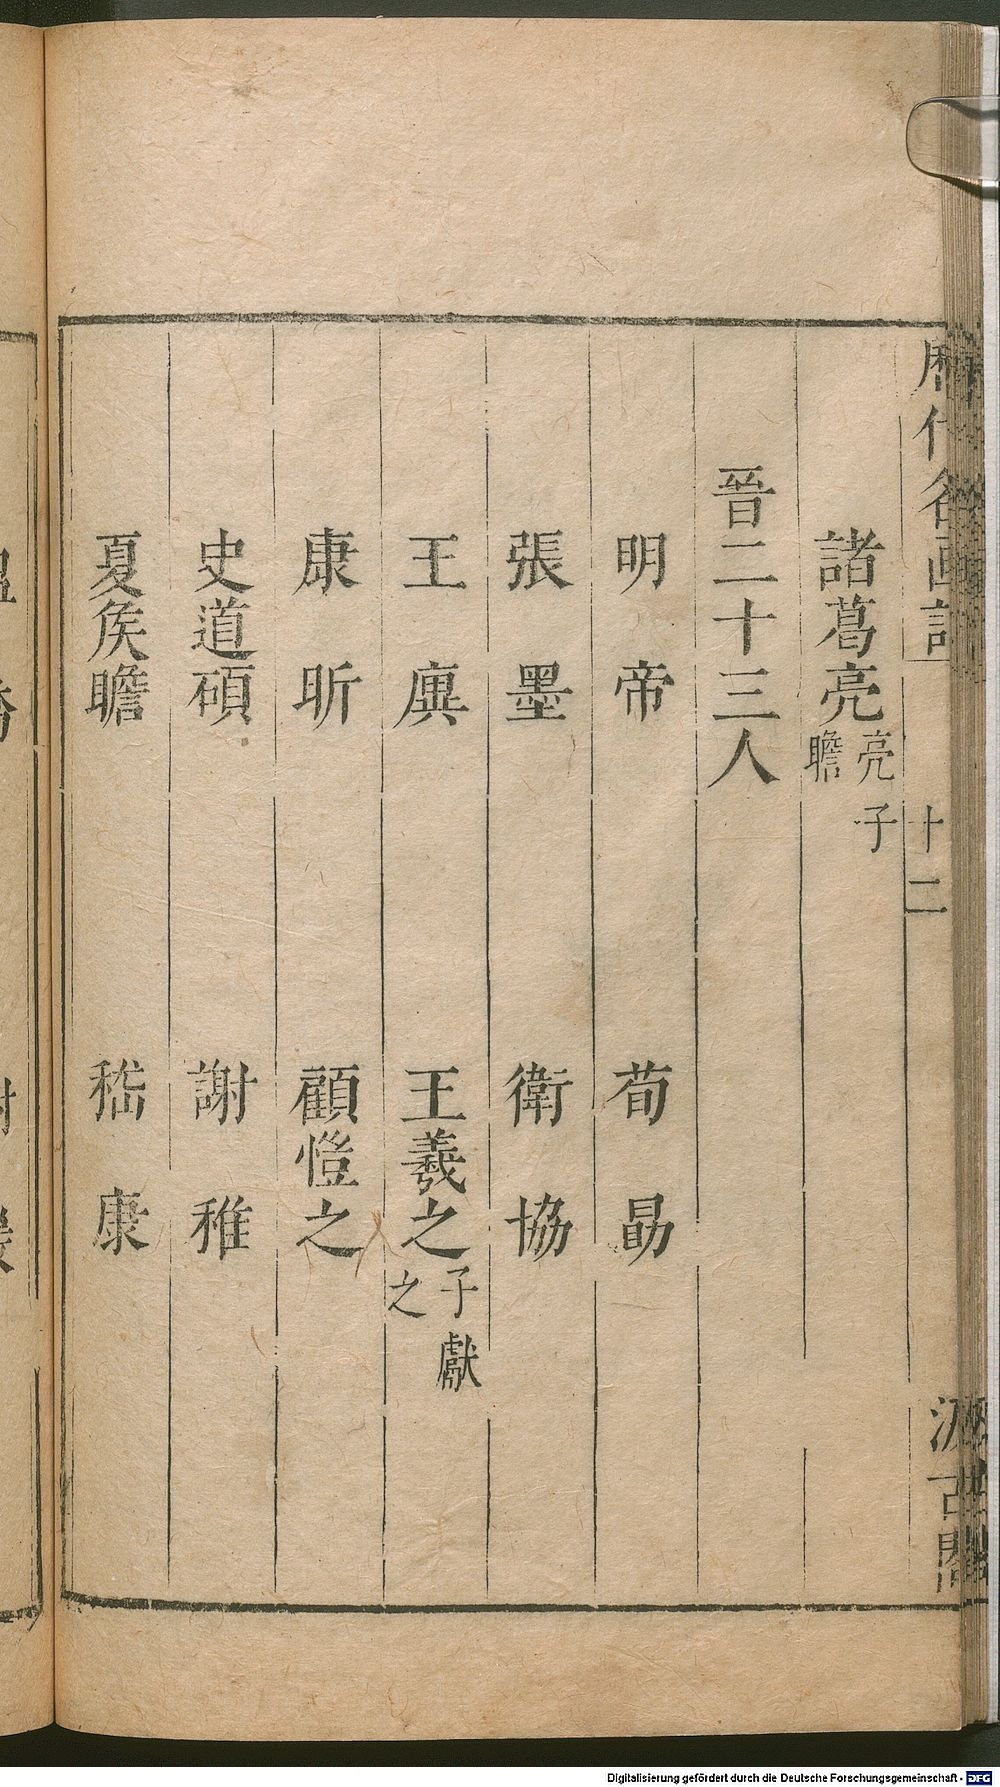 歷代名画記 十二 汲古閣
諸葛亮 亮子瞻
晉二十三人
明帝 荀勗
張墨 衛協
王廙 王羲之 子獻之
康昕 顧愷之
史道碩 謝稚
夏矦瞻 嵇康
Digitalisierung gefördert durch die Deutsche Forschungsgemeinschaft - DFG